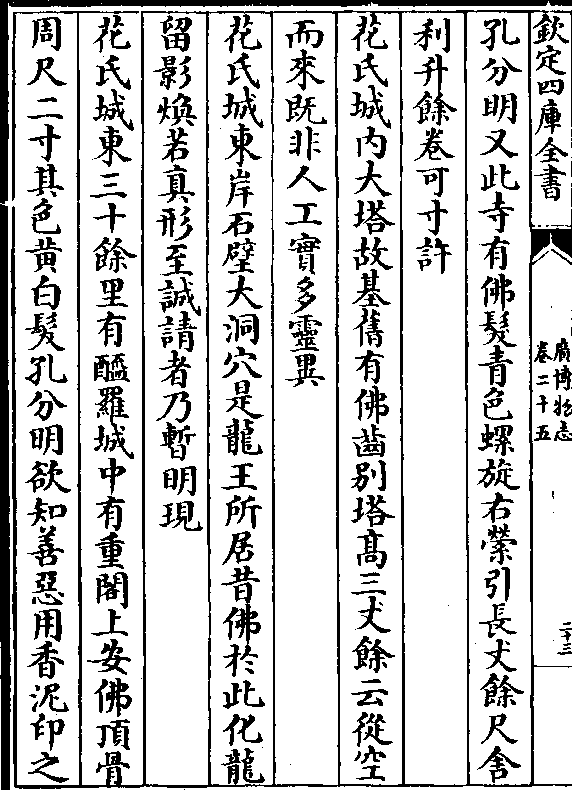 欽定四庫全書
廣博物志
卷二十五
二十三
孔分明又此寺有佛髮青色螺旋右縈引長丈餘尺舍
利升餘卷可寸許
花氏城内大塔故基舊有佛齒别塔髙三丈餘云從空
而來既非人工實多靈異
花氏城東岸石壁大洞穴是龍王所居昔佛於此化龍
留影煥若真形至誠請者乃暫明現
花氏城東三十餘里有醯羅城中有重閣上安佛頂骨
周尺二寸其色黄白髮孔分明欲知善惡用香泥印之